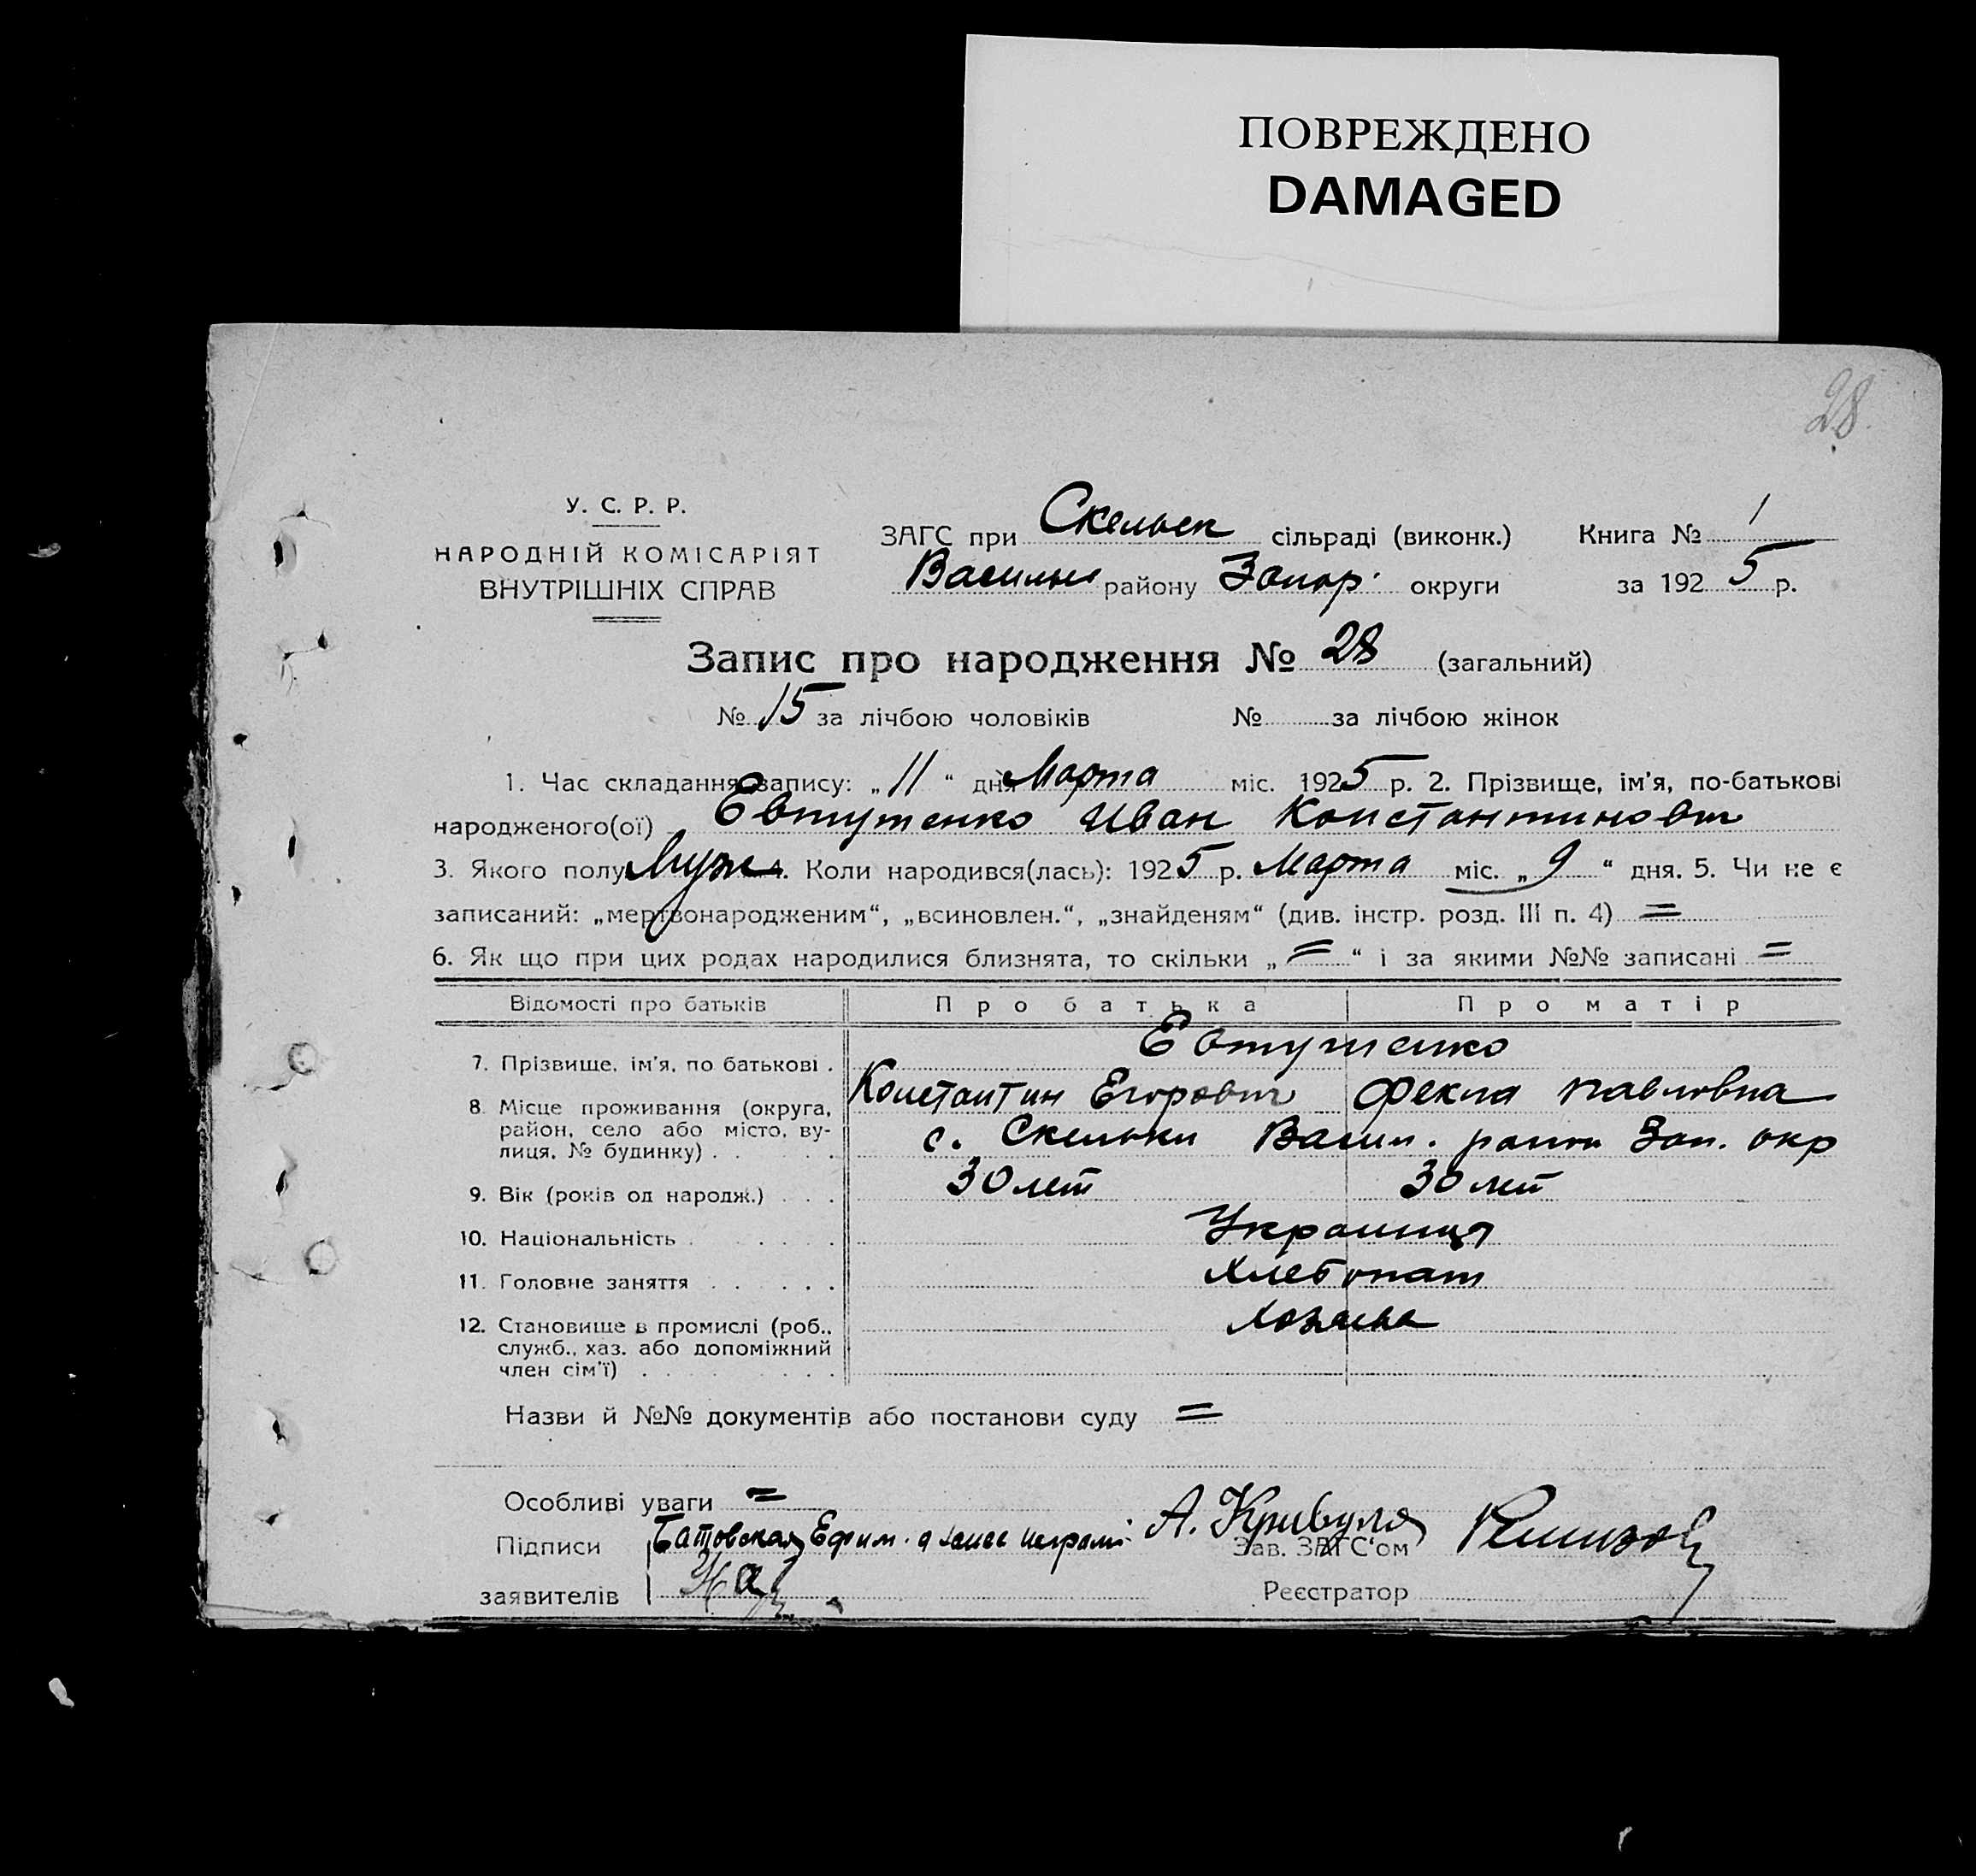 ПОВРЕЖДЕНО
DAMAGED
28
У. С. Р. Р.
НАРОДНІЙ КОМІСАРІЯТ
ВНУТРІШНІХ СПРАВ
ЗАГС при Скельск сільраді (виконк.) Книга № 1
Васильк району Запор. округи за 1925 р.
Запис про народження № 28 (загальний)
№ 15 за лічбою чоловіків № за лічбою жінок
1. Час складання запису: „11“ дня Марта міс. 1925 р. 2. Прізвище, ім'я, по-батькові
народженого(ої) Евтушенко Иван Константинович
3. Якого полу Муж 4. Коли народився(лась): 1925 р. Марта міс. „9“ дня. 5. Чи не є
записаний: „мертвонародженим“, „всиновлен.“, „знайденям“ (див. інстр. розд. III п. 4) =
6. Як що при цих родах народилися близнята, то скільки „=“ і за якими №№ записані =
Відомості про батьків Про батька Про матір
Евтушенко
7. Прізвище, ім'я, по батькові . Константин Егорович Фекла Павловна
8. Місце проживання (округа,
район, село або місто, ву-
лиця, № будинку) . . . . с. Скельки Васил. район Зап. окр
9. Вік (років од народж.) . . . 30 лет 30 лет
10. Національність . . . . . . Украинцы
11. Головне заняття . . . . . . Хлебопаш
12. Становище в промислі (роб.,
служб., хаз. або допоміжний
член сім'ї) . . . . . . . . Хозяева
Назви й №№ документів або постанови суду =
Особливі уваги =
Підписи Батовская Ефим. А. Кривуля
Зав. ЗАГС'ом
заявителів
Реєстратор